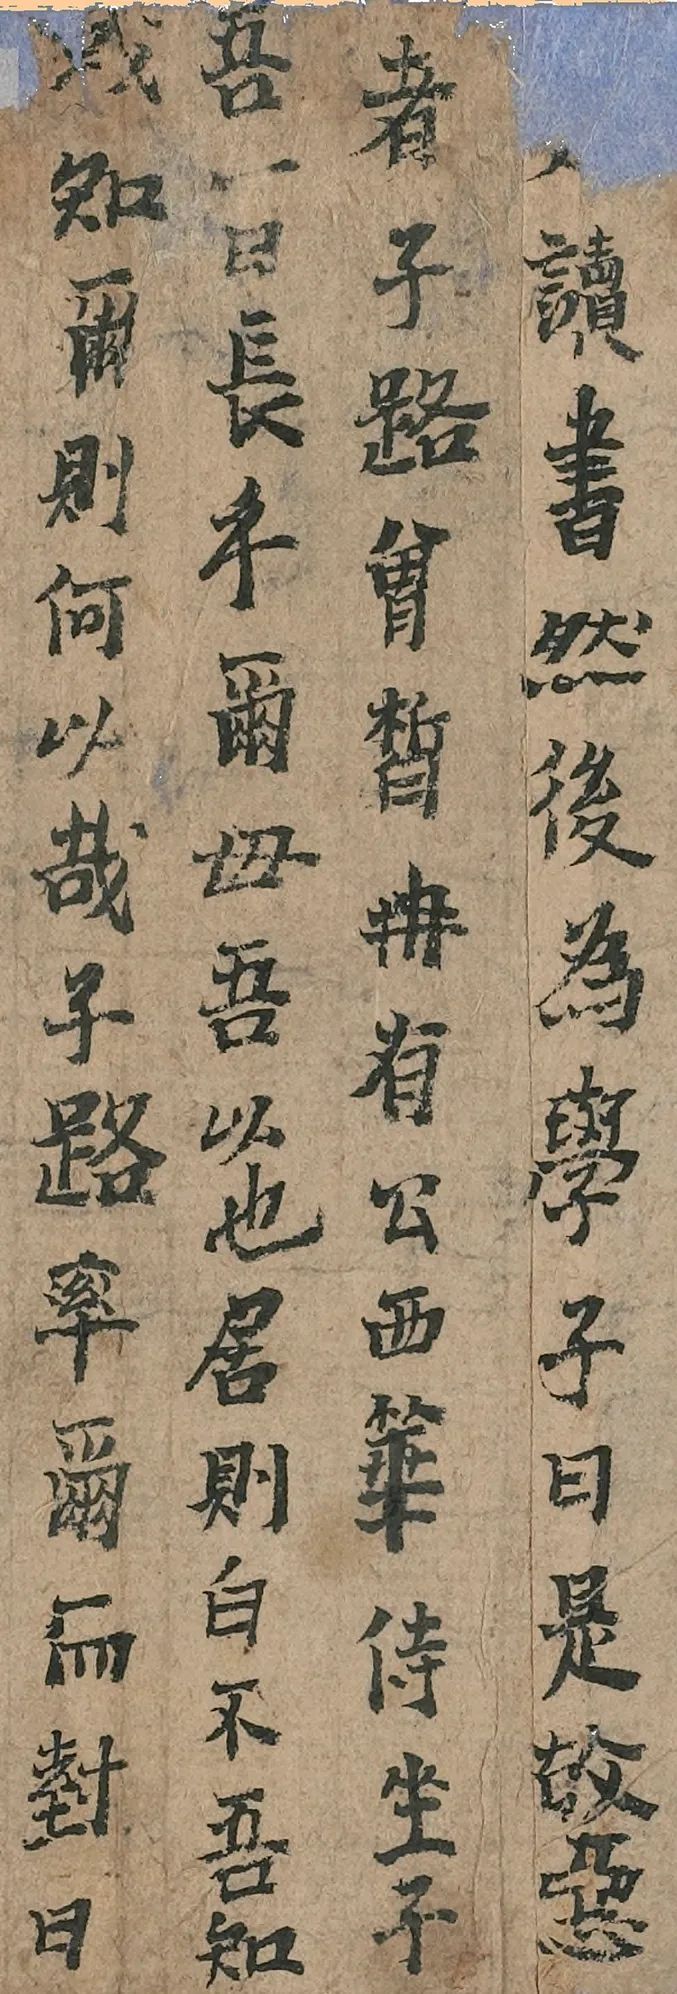 讀書然後為學子曰是故惡
者子路曾晳冉有公西華侍坐子
吾一日長乎爾毋吾以也居則曰不吾知
或知爾則何以哉子路率爾而對曰